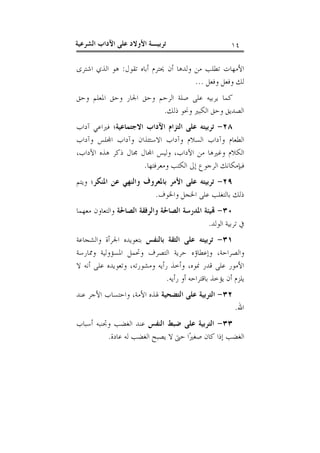 ١٤ تربيـة الأولاد على الآداب الشرعية
الأمهات تطلب من ولدها أن يحترم أباه تقول: هو الذي اشترى
لك وفعل وفعل ...
كما يربيه على صلة الرحم وحق الجار وحق المعلم وحق
الصديق وحق الكبير ونحو ذلك.
٢٨- تربيته على التزام الآداب الاجتماعية؛ فيراعي آداب
الطعام وآداب السلام وآداب الاستئذان وآداب المجلس وآداب
الكلام وغيرها من الآداب، وليس المجال مجال ذكر هذه الآداب،
فبإمكانك الرجوع إلى الكتب ومعرفتها.
٢٩- تربيته على الأمر بالمعروف والنهي عن المنكر؛ ويتم
ذلك بالتغلب على الخجل والخوف.
٣٠- تهيئة المدرسة الصالحة والرفقة الصالحة والتعاون معهما
في تربية الولد.
٣١- تربيته على الثقة بالنفس بتعويده الجرأة والشجاعة
والصراحة، وإعطاؤه حرية التصرف وتحمل المسؤولية وممارسة
الأمور على قدر نموه، وأخذ رأيه ومشورته، وتعويده على أنه لا
يلزم أن يؤخذ باقتراحه أو رأيه.
٣٢- التربية على التضحية لهذه الأمة، واحتساب الأجر عند
الله.
٣٣- التربية على ضبط النفس عند الغضب وتجنبه أسباب
الغضب إذا كان صغيرًا حتى لا يصبح الغضب له عادة.